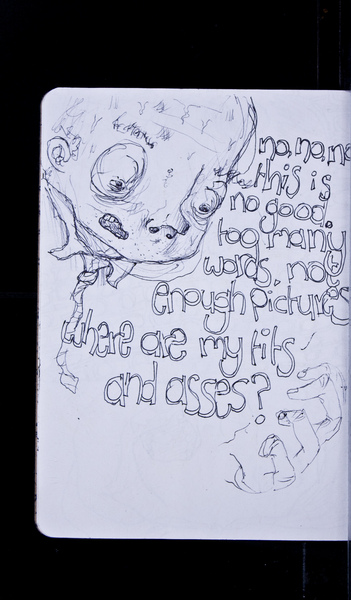 no, no, no
this is
no good.
too many
words, not
enough pictures
where are my tits
and asses?